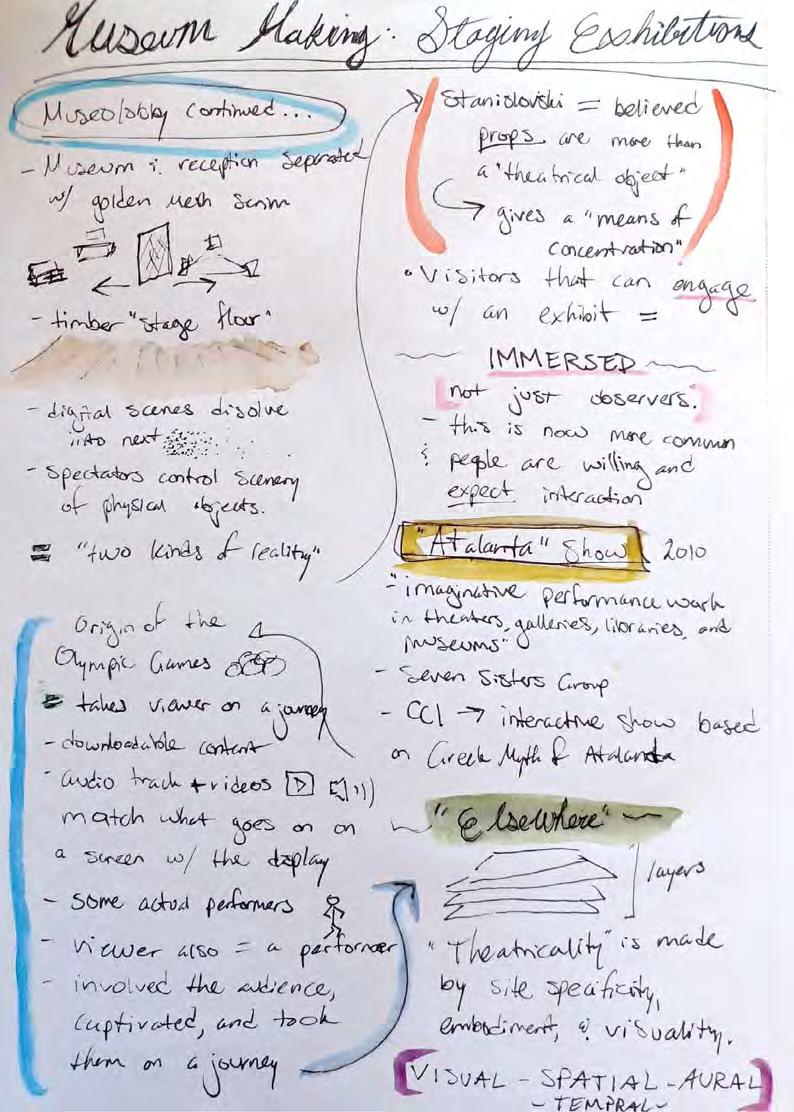 Museum Making: Staging Exshibitions
Museolobby continued...
- Museum & reception separated
w/ golden mesh scrim
- timber "stage floor"
- digital scenes disolve
into next
- spectators control scenery
of physical objects.
= "two kinds of reality"
Origin of the
Olympic Games
- takes viewer on a journey
- downloadable content
- audio track + videos
match what goes on on
a screen w/ the display
- some actual performers
- viewer also = a performer
- involved the audience,
captivated, and took
them on a journey
Stanislovski = believed
props are more than
a "theatrical object"
gives a "means of
concentration"
• Visitors that can engage
w/ an exhibit =
IMMERSED
not just observers.
- this is now more common
& people are willing and
expect interaction
"Atalanta" Show 2010
- "imaginative performance work
in theaters, galleries, libraries, and
museums"
- Seven Sisters Group
- CCI → interactive show based
on Greek Myth of Atalanta
"Elsewhere"
layers
"Theatricality" is made
by site specificity,
embodiment, & visuality.
[VISUAL - SPATIAL - AURAL]
- TEMPRAL -